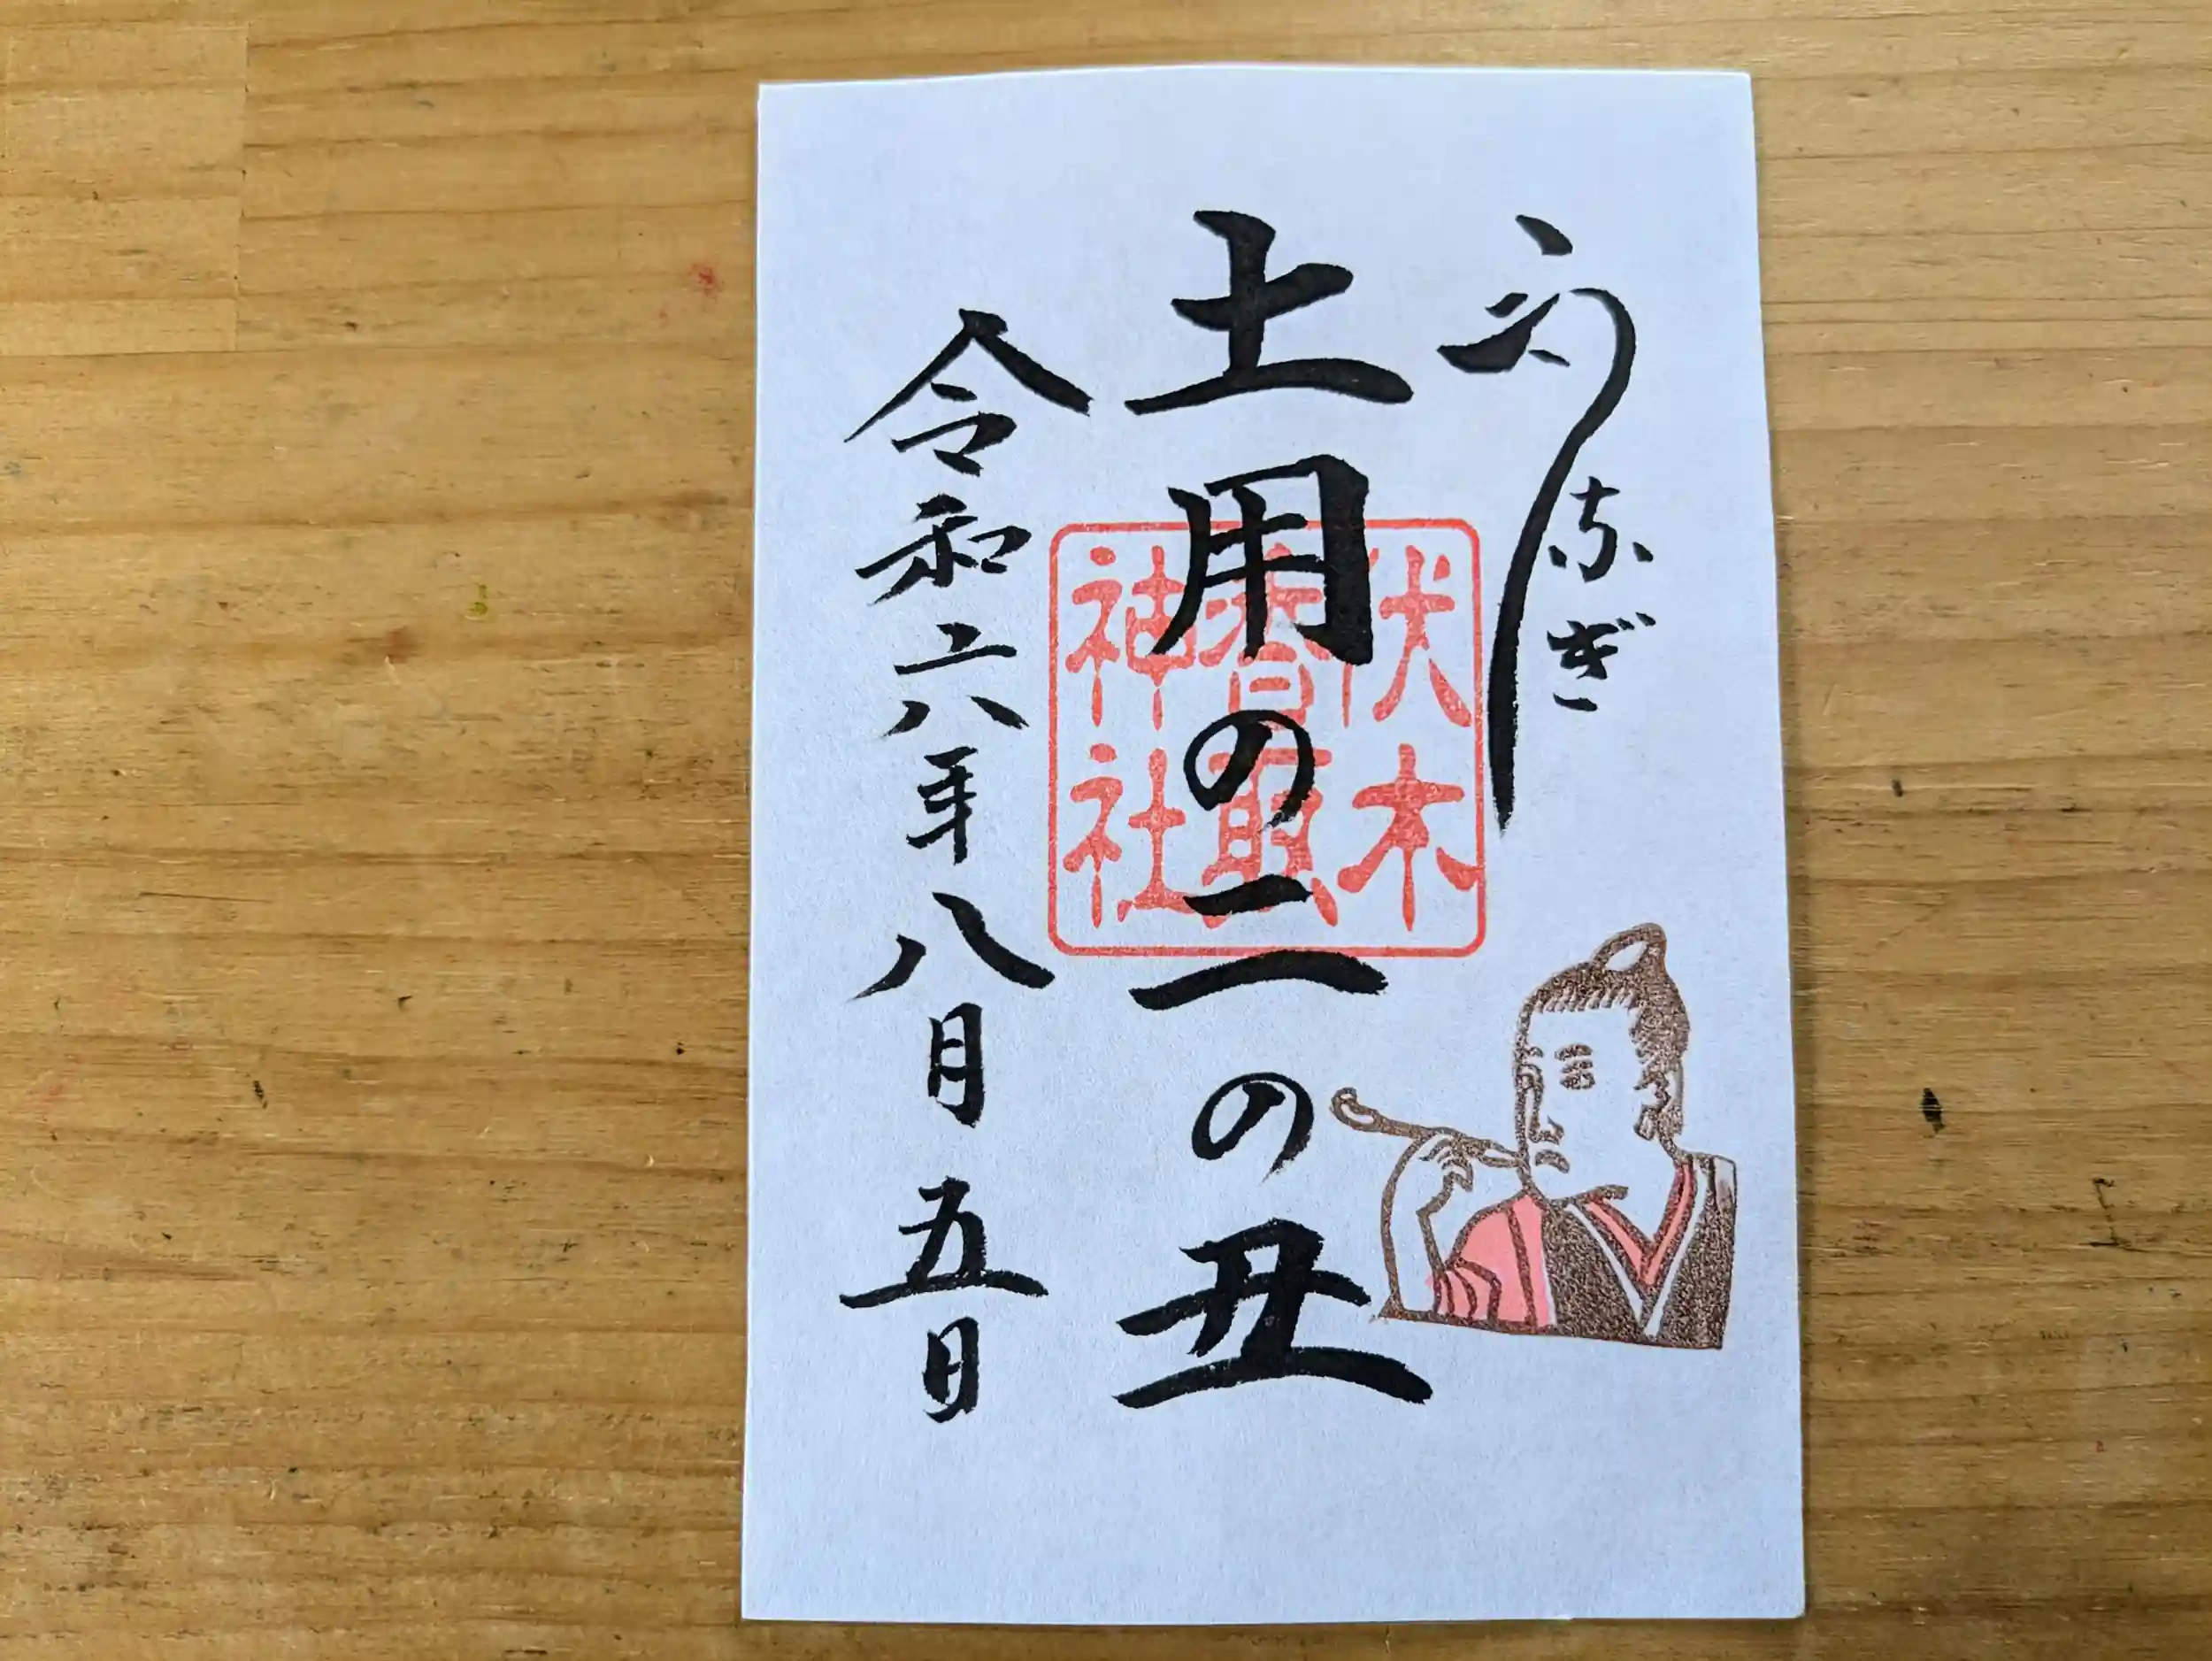 うなぎ
土用の二の丑
令和六年八月五日
伏木香取神社